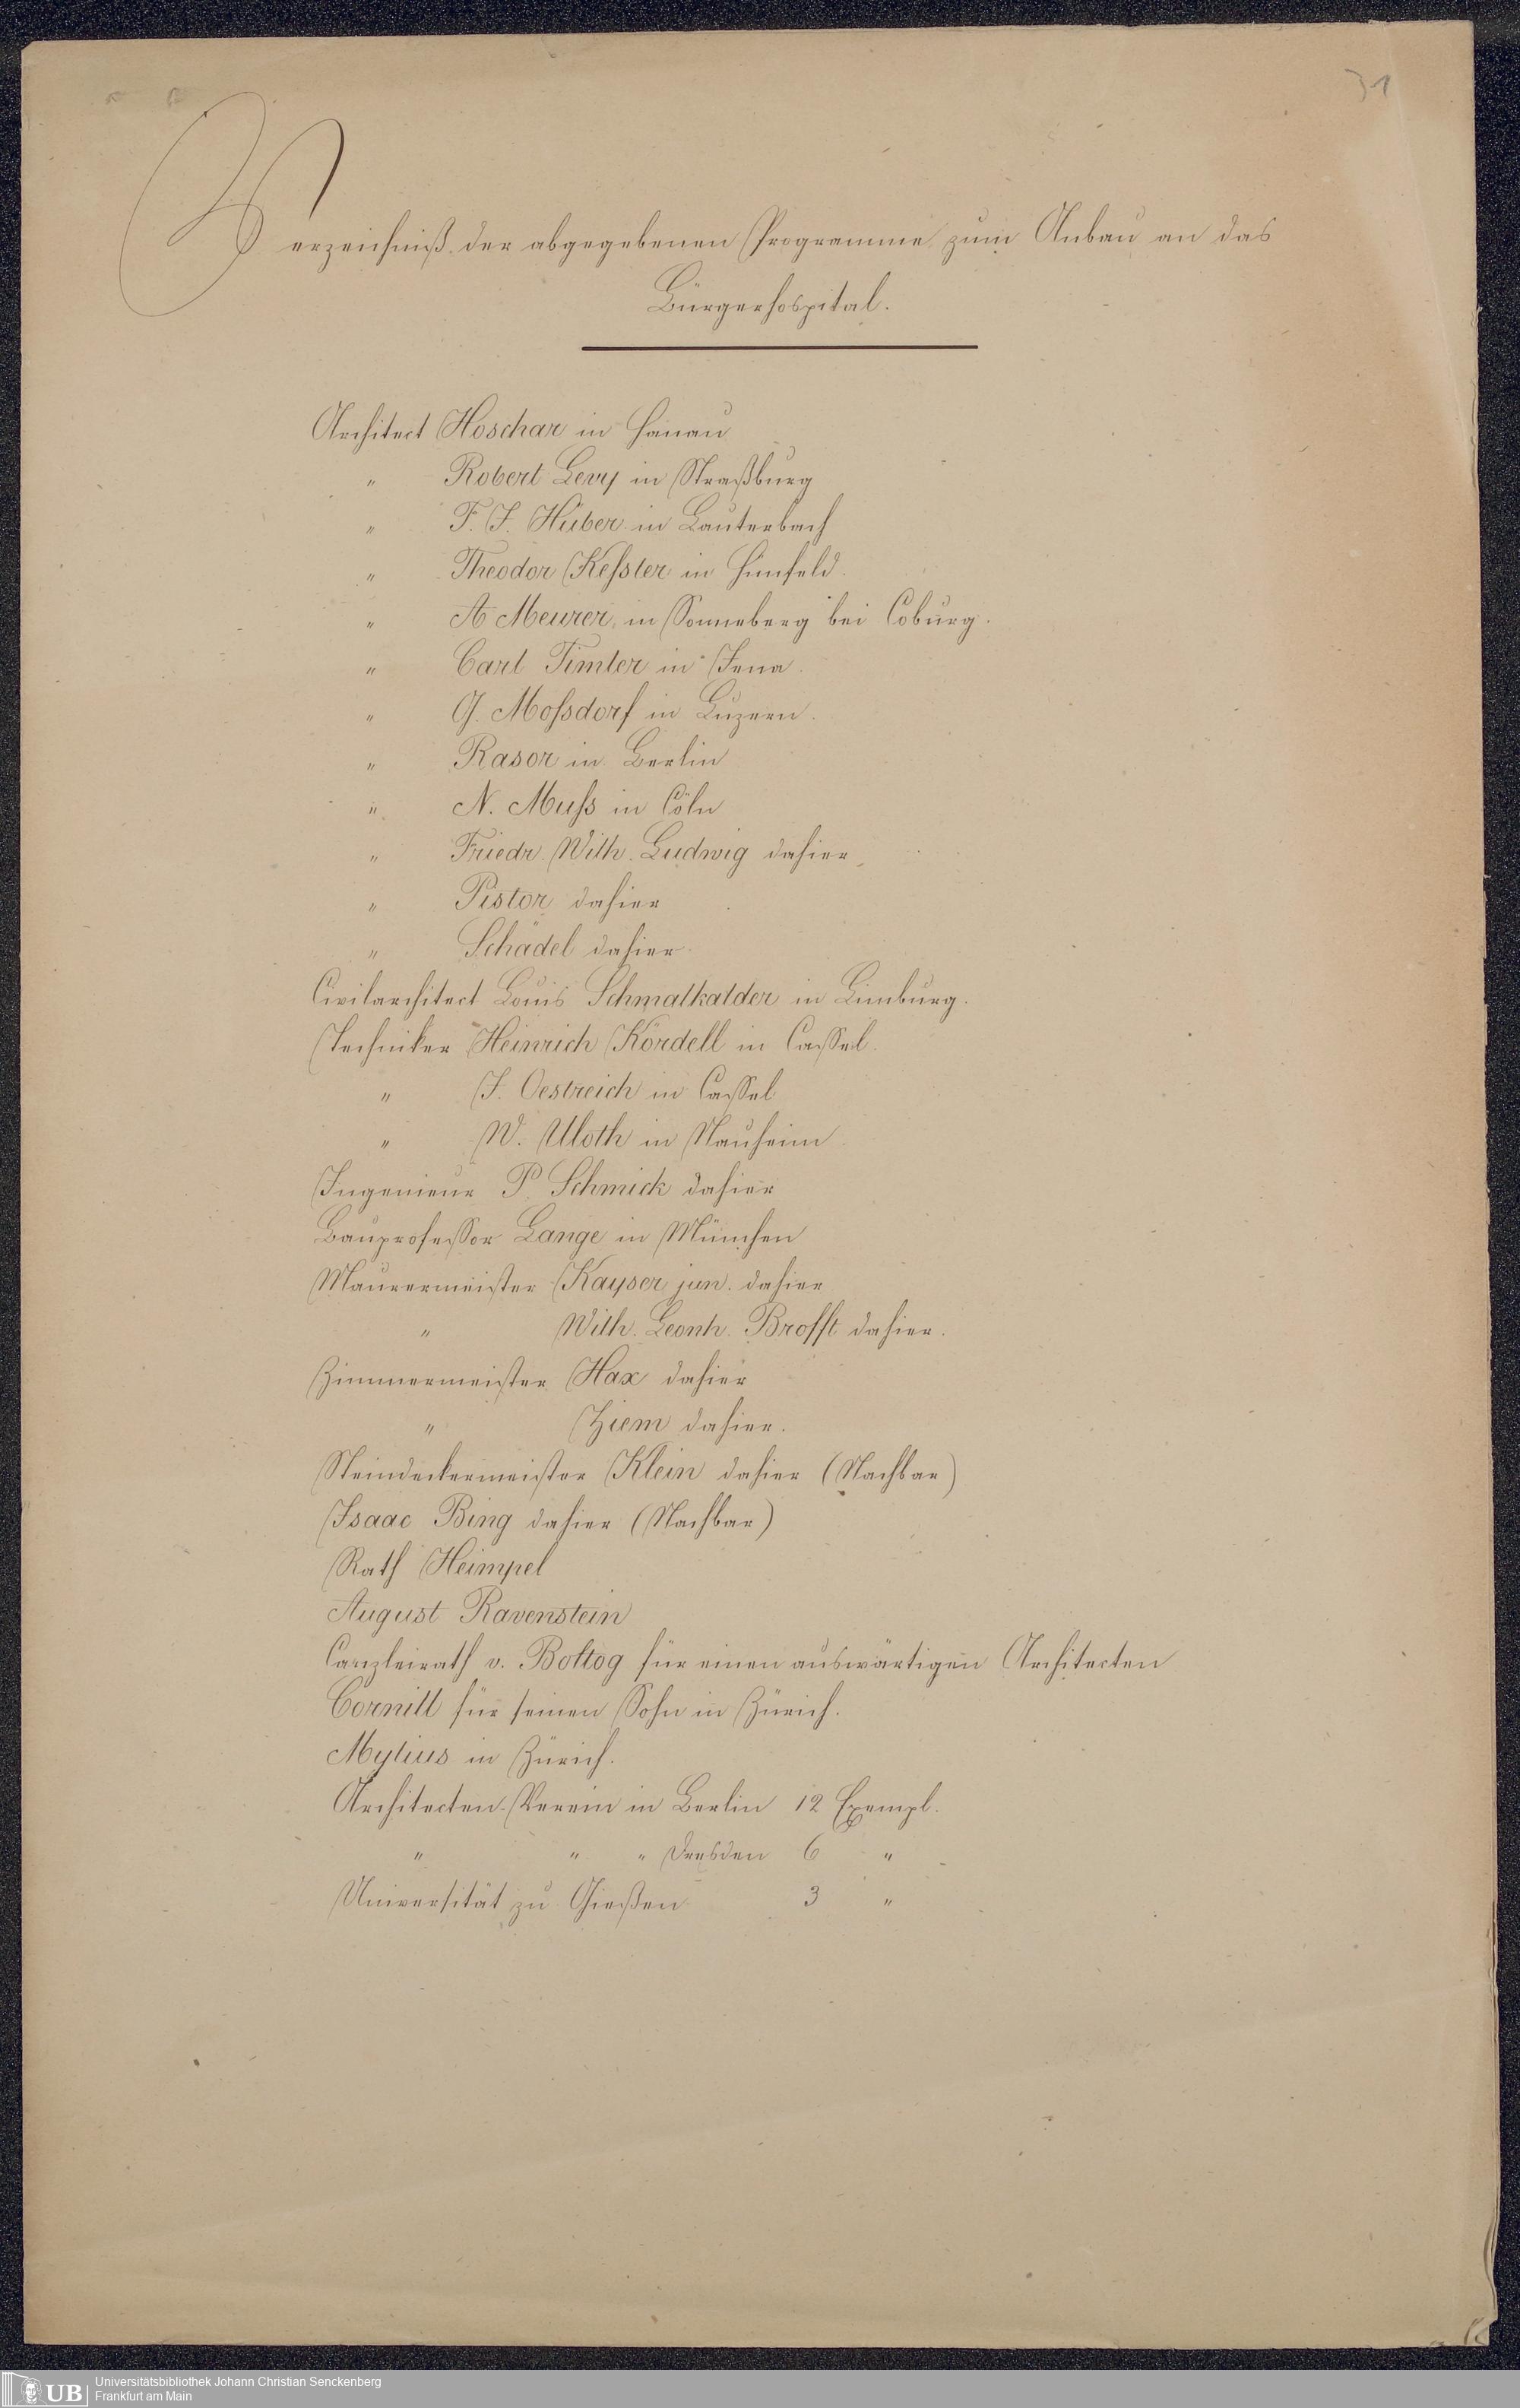 31
Verzeichniß der abgegebenen Programme zum Anbau an das
Bürgerhospital.
Architect Hoschar in Hanau
" Robert Levy in Straßburg
" F. J. Huber in Lauterbach
" Theodor Keßler in Hünfeld.
" A Meurer in Sonneberg bei Coburg.
" Carl Timler in Jena.
" G. Moßdorf in Luzern.
" Rasor in Berlin
" N. Muß in Cöln
" Friedr. Wilh. Ludwig dahier
" Pistor dahier
" Schädel dahier
Civilarchitect Louis Schmalkalder in Limburg.
Techniker Heinrich Kördell in Cassel.
" J. Oestreich in Cassel
" W. Uloth in Nauheim
Ingenieur P. Schmick dahier
Bauprofessor Lange in München
Maurermeister Kayser jun. dahier
" Wilh. Leonh. Brofft dahier.
Zimmermeister Hax dahier
" Ziem dahier.
Steindeckermeister Klein dahier (Nachbar)
Isaac Bing dahier (Nachbar)
Rath Heimpel
August Ravenstein
Canzleirath v. für einen auswärtigen Architecten
Cornill für seinen Sohn in Zürich.
Mylius in Zürich.
Architecten-Verein in Berlin 12 Exempl.
" " " Dresden 6 "
Universität zu Gießen 3 "
UB
Universitätsbibliothek Johann Christian Senckenberg
Frankfurt am Main